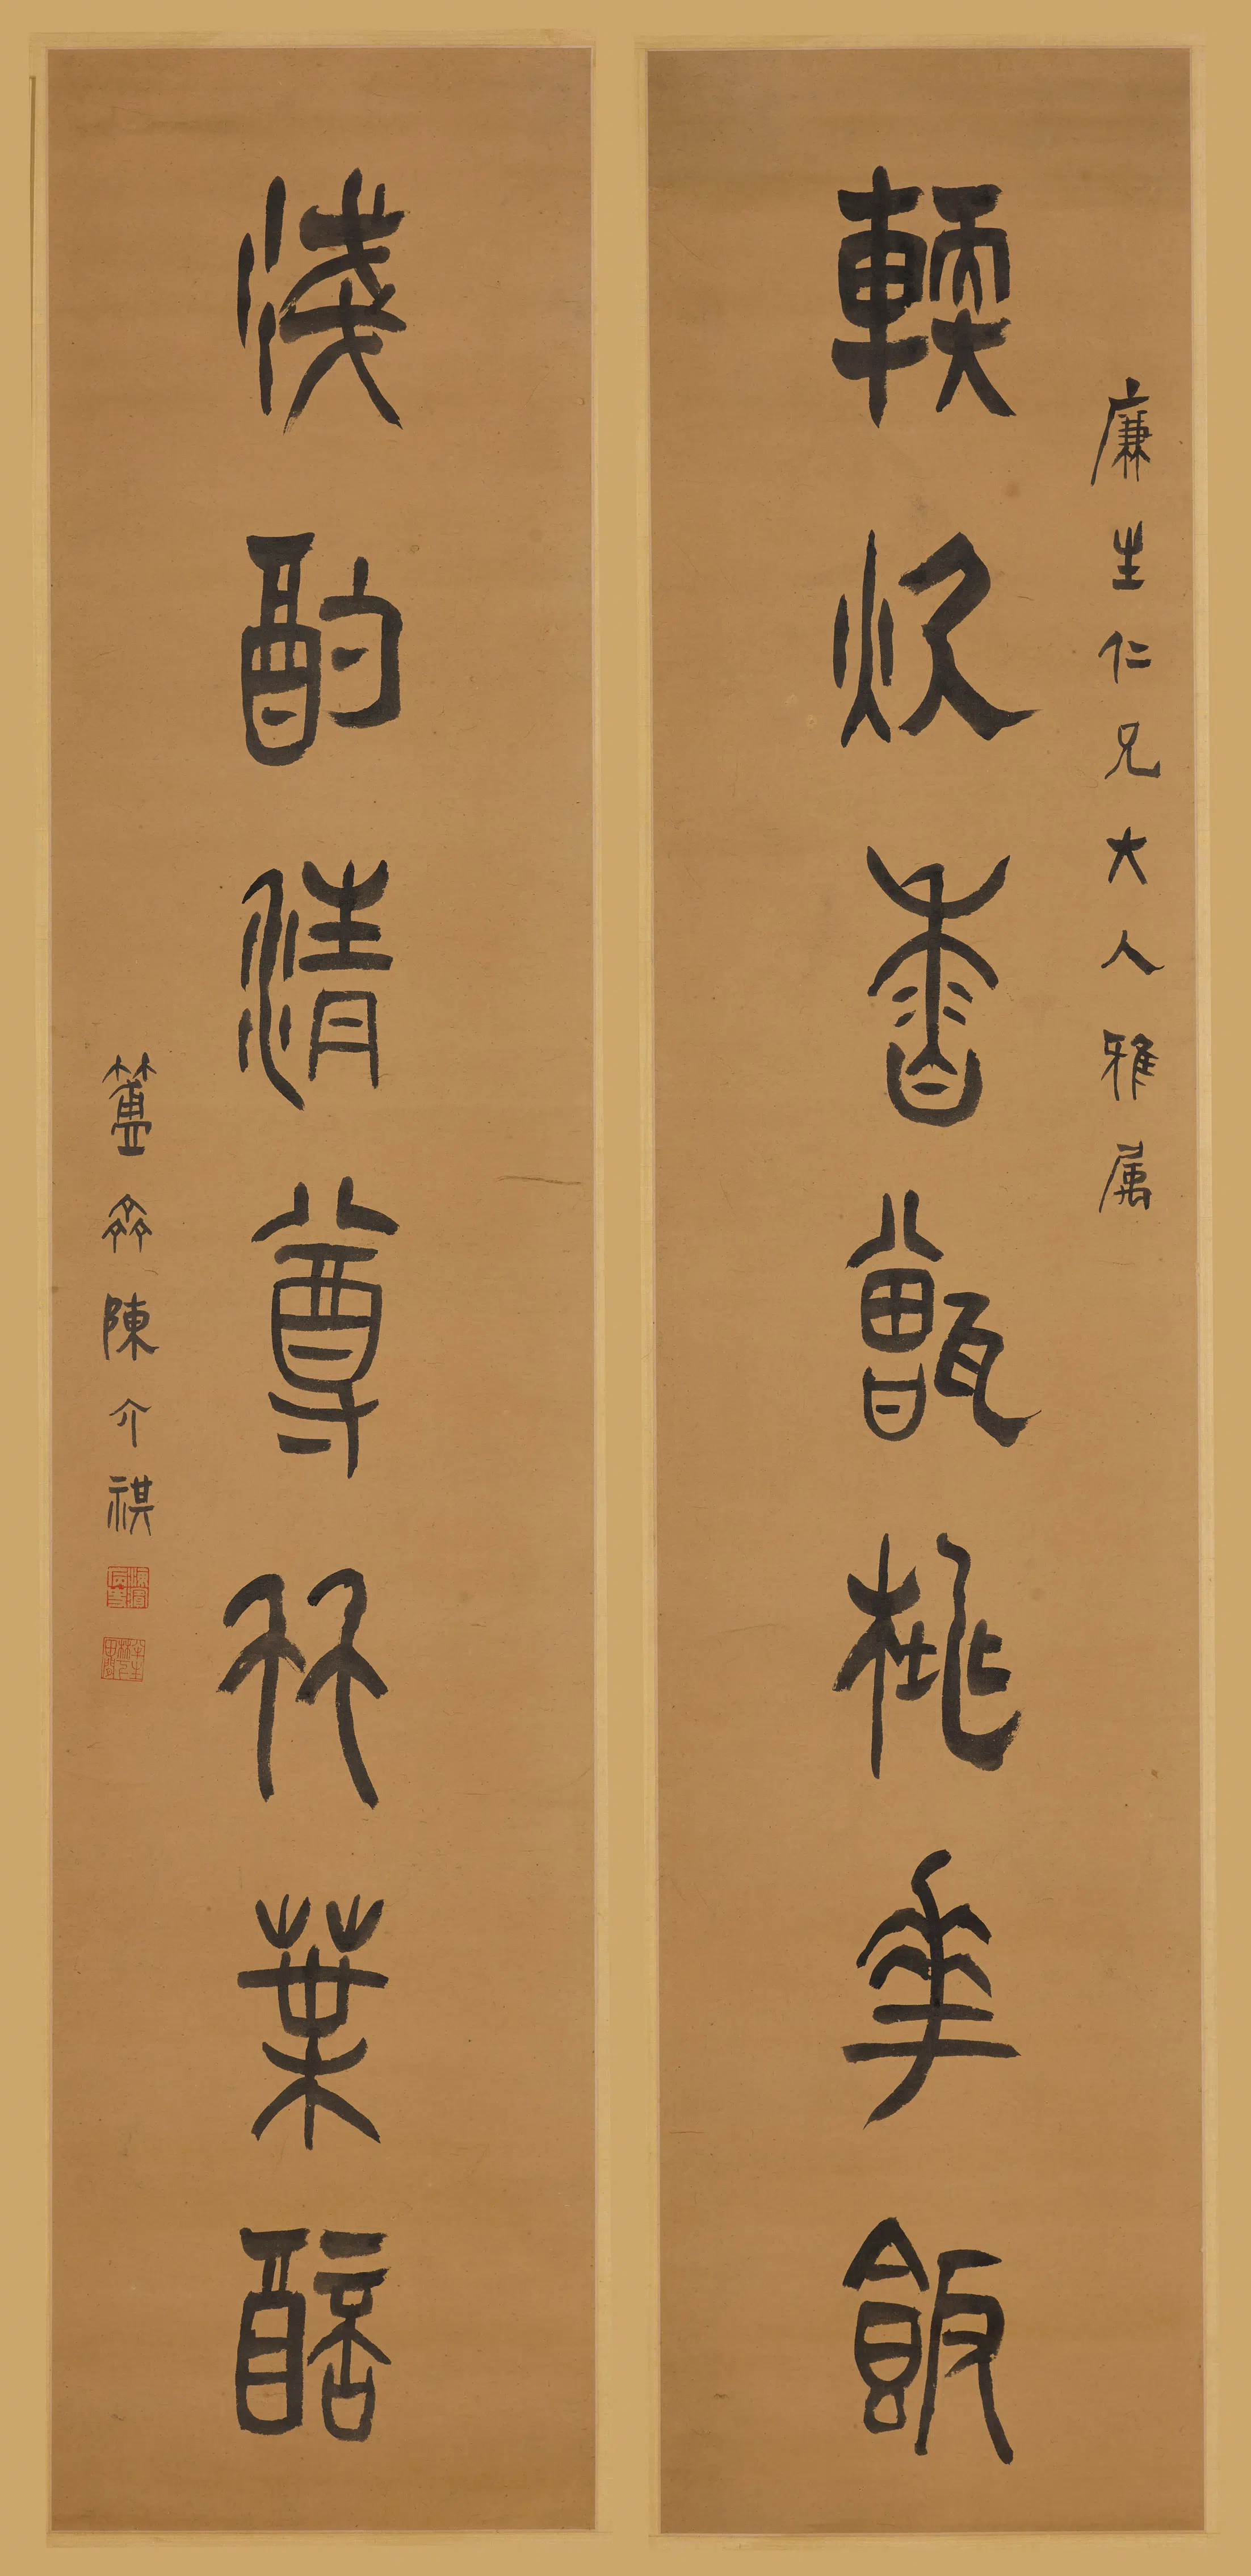 廉生仁兄大人雅属
輭炊香甑桃華飯
淺酌清尊竹葉醅
簠齋陳介祺